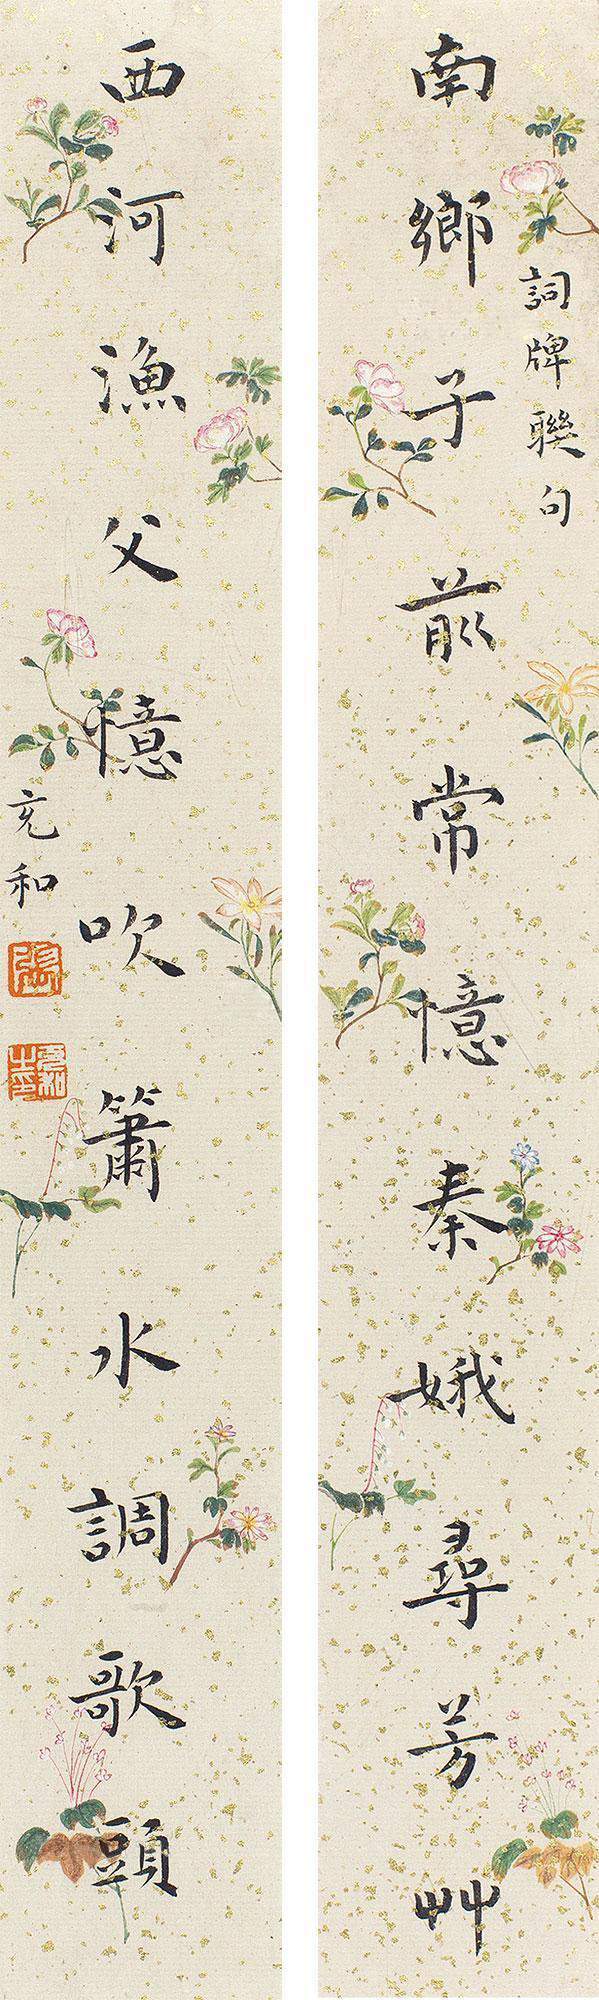 詞牌聯句
南鄉子前常憶秦娥尋芳艸
西河漁父憶吹簫水調歌頭
充和